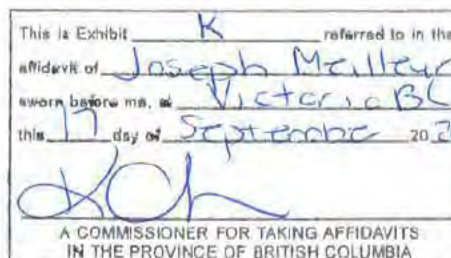 This is Exhibit K referred to in the
affidavit of Joseph Meilleur
sworn before me, at Victoria BC
this 17 day of Septembe 202
A COMMISSIONER FOR TAKING AFFIDAVITS
IN THE PROVINCE OF BRITISH COLUMBIA